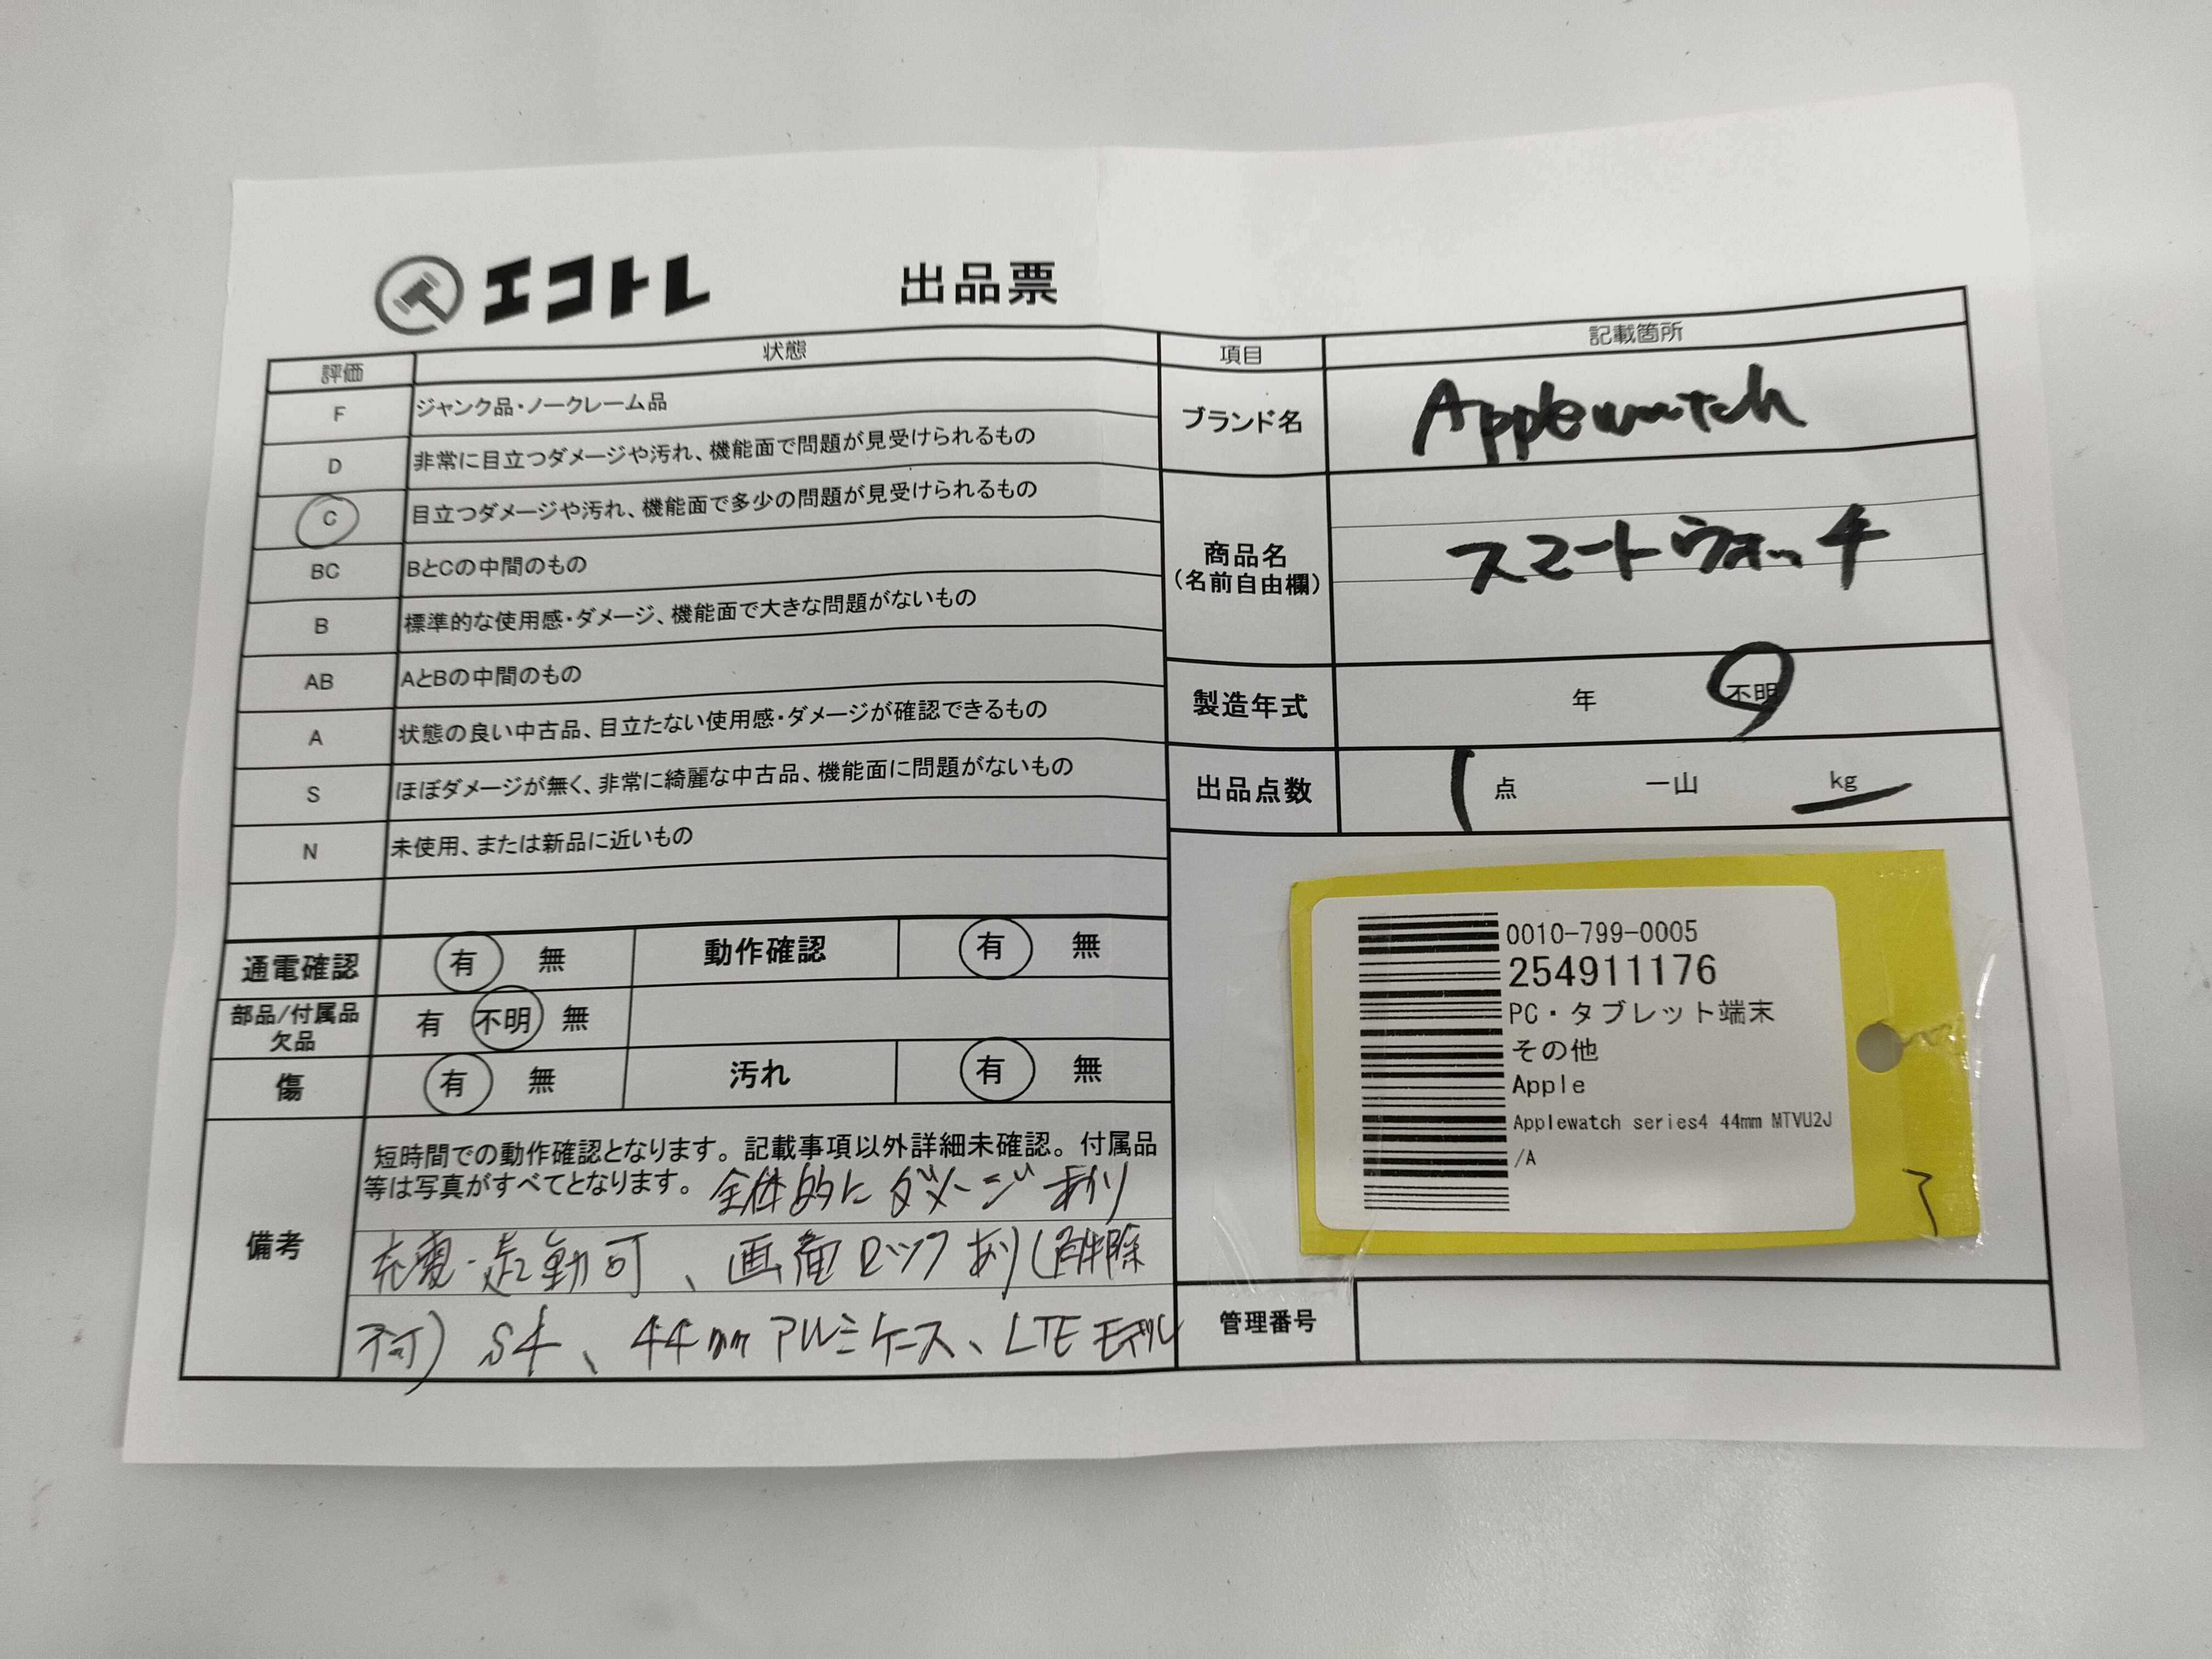 エコトレ 出品票
評価 状態
F ジャンク品・ノークレーム品
D 非常に目立つダメージや汚れ、機能面で問題が見受けられるもの
C 目立つダメージや汚れ、機能面で多少の問題が見受けられるもの
BC BとCの中間のもの
B 標準的な使用感・ダメージ、機能面で大きな問題がないもの
AB AとBの中間のもの
A 状態の良い中古品、目立たない使用感・ダメージが確認できるもの
S ほぼダメージが無く、非常に綺麗な中古品、機能面に問題がないもの
N 未使用、または新品に近いもの
通電確認 有 無 動作確認 有 無
部品/付属品 有 不明 無
欠品
傷 有 無 汚れ 有 無
備考
短時間での動作確認となります。記載事項以外詳細未確認。付属品
等は写真がすべてとなります。全体的にダメージあり
充電・起動可、画面ロックあり(解除
不可) S4、44mmアルミケース、LTEモデル
項目 記載箇所
ブランド名 Applewatch
商品名 スマートウォッチ
(名前自由欄)
製造年式 年 不明
出品点数 1 点 一山 kg
0010-799-0005
254911176
PC・タブレット端末
その他
Apple
Applewatch series4 44mm MTVU2J
/A
管理番号